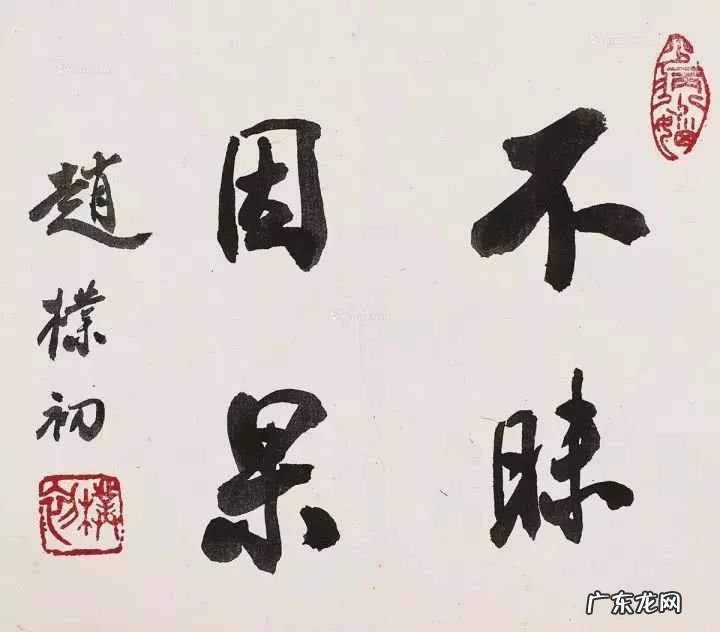 不昧
因果
趙樸初
樸初
广东龙网